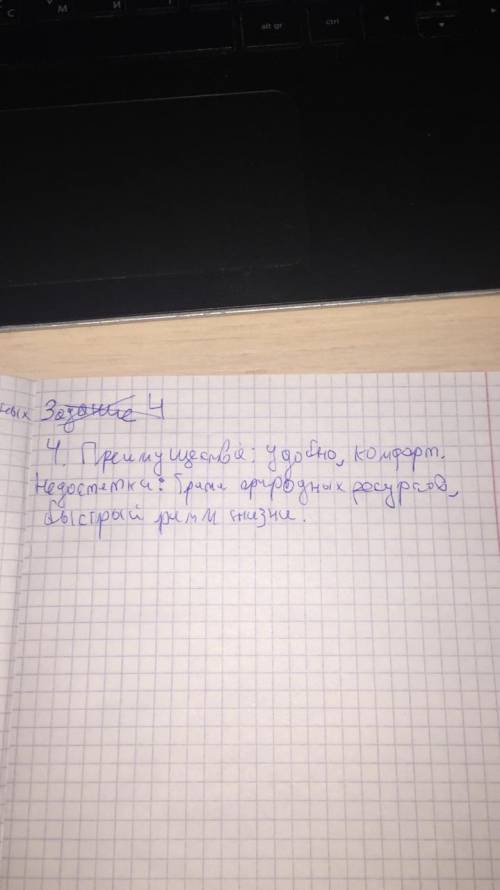 С М И
alt gr ctrl
ных Задание 4
4. Преимущества: удобно, комфорт.
Недостатки: трата природных ресурсов,
быстрый ритм жизни.